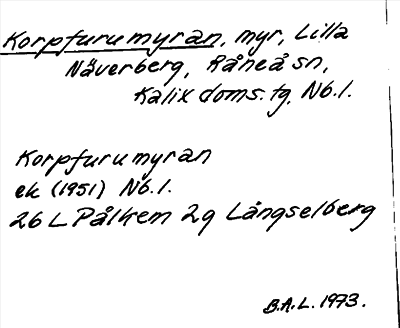 Korpfurumyran, myr, Lilla
Näverberg, Råneå sn,
Kalix doms.tg, Nb.l.
Korpfurumyran
ek (1951) Nb.l.
26 L Pålkem 2g Långselberg
B.A.L. 1973.